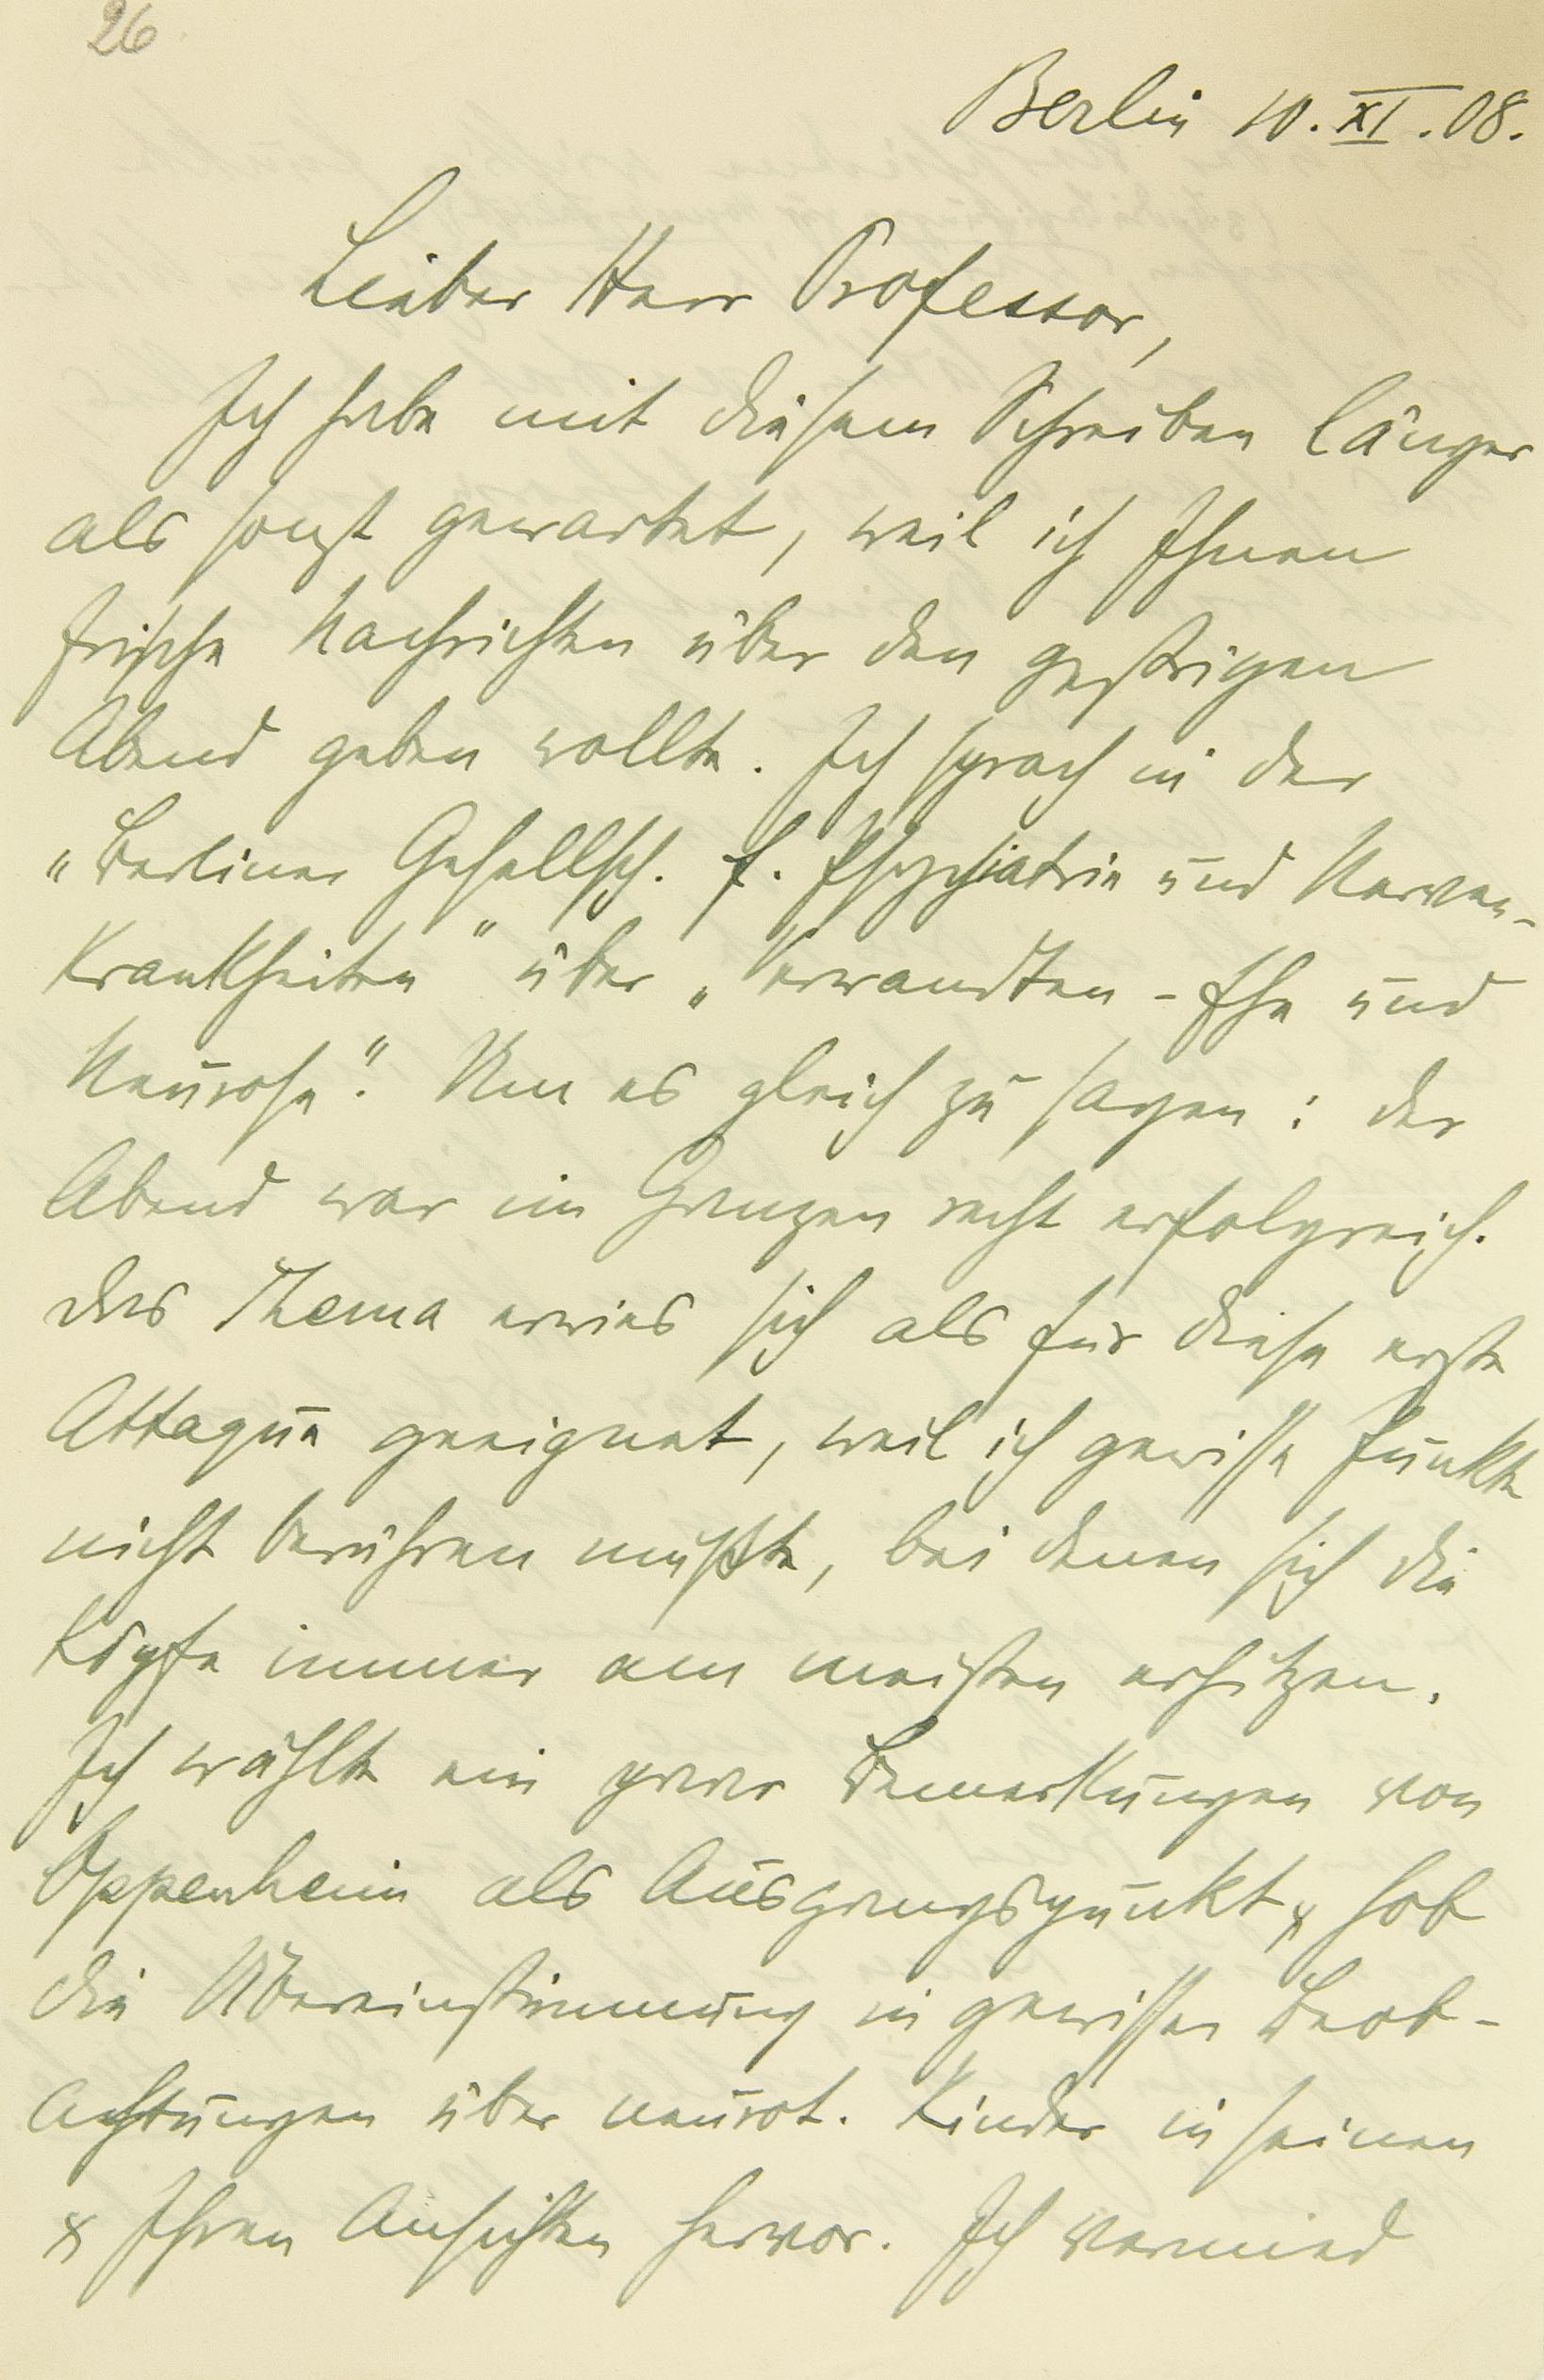 26
Berlin 10.XI.08.
Lieber Herr Professor,
Ich habe mit diesem Schreiben länger
als sonst gewartet, weil ich Ihnen
frische Nachrichten über den gestrigen
Abend geben wollte. Ich sprach in der
„Berliner Gesellsch. f. Psychiatrie und Nerven-
krankheiten“ über „Verwandten-Ehe und
Neurose“. Um es gleich zu sagen: der
Abend war im Ganzen recht erfolgreich.
Das Thema erwies sich als für diese erste
Attaque geeignet, weil ich gewisse Punkte
nicht berühren mußte, bei denen sich die
Köpfe immer am meisten erhitzen.
Ich wählte ein paar Bemerkungen von
Oppenheim als Ausgangspunkt & hob
die Übereinstimmung in gewissen Beob-
achtungen über neurot. Kinder in seinen
& Ihren Ansichten hervor. Ich vermied